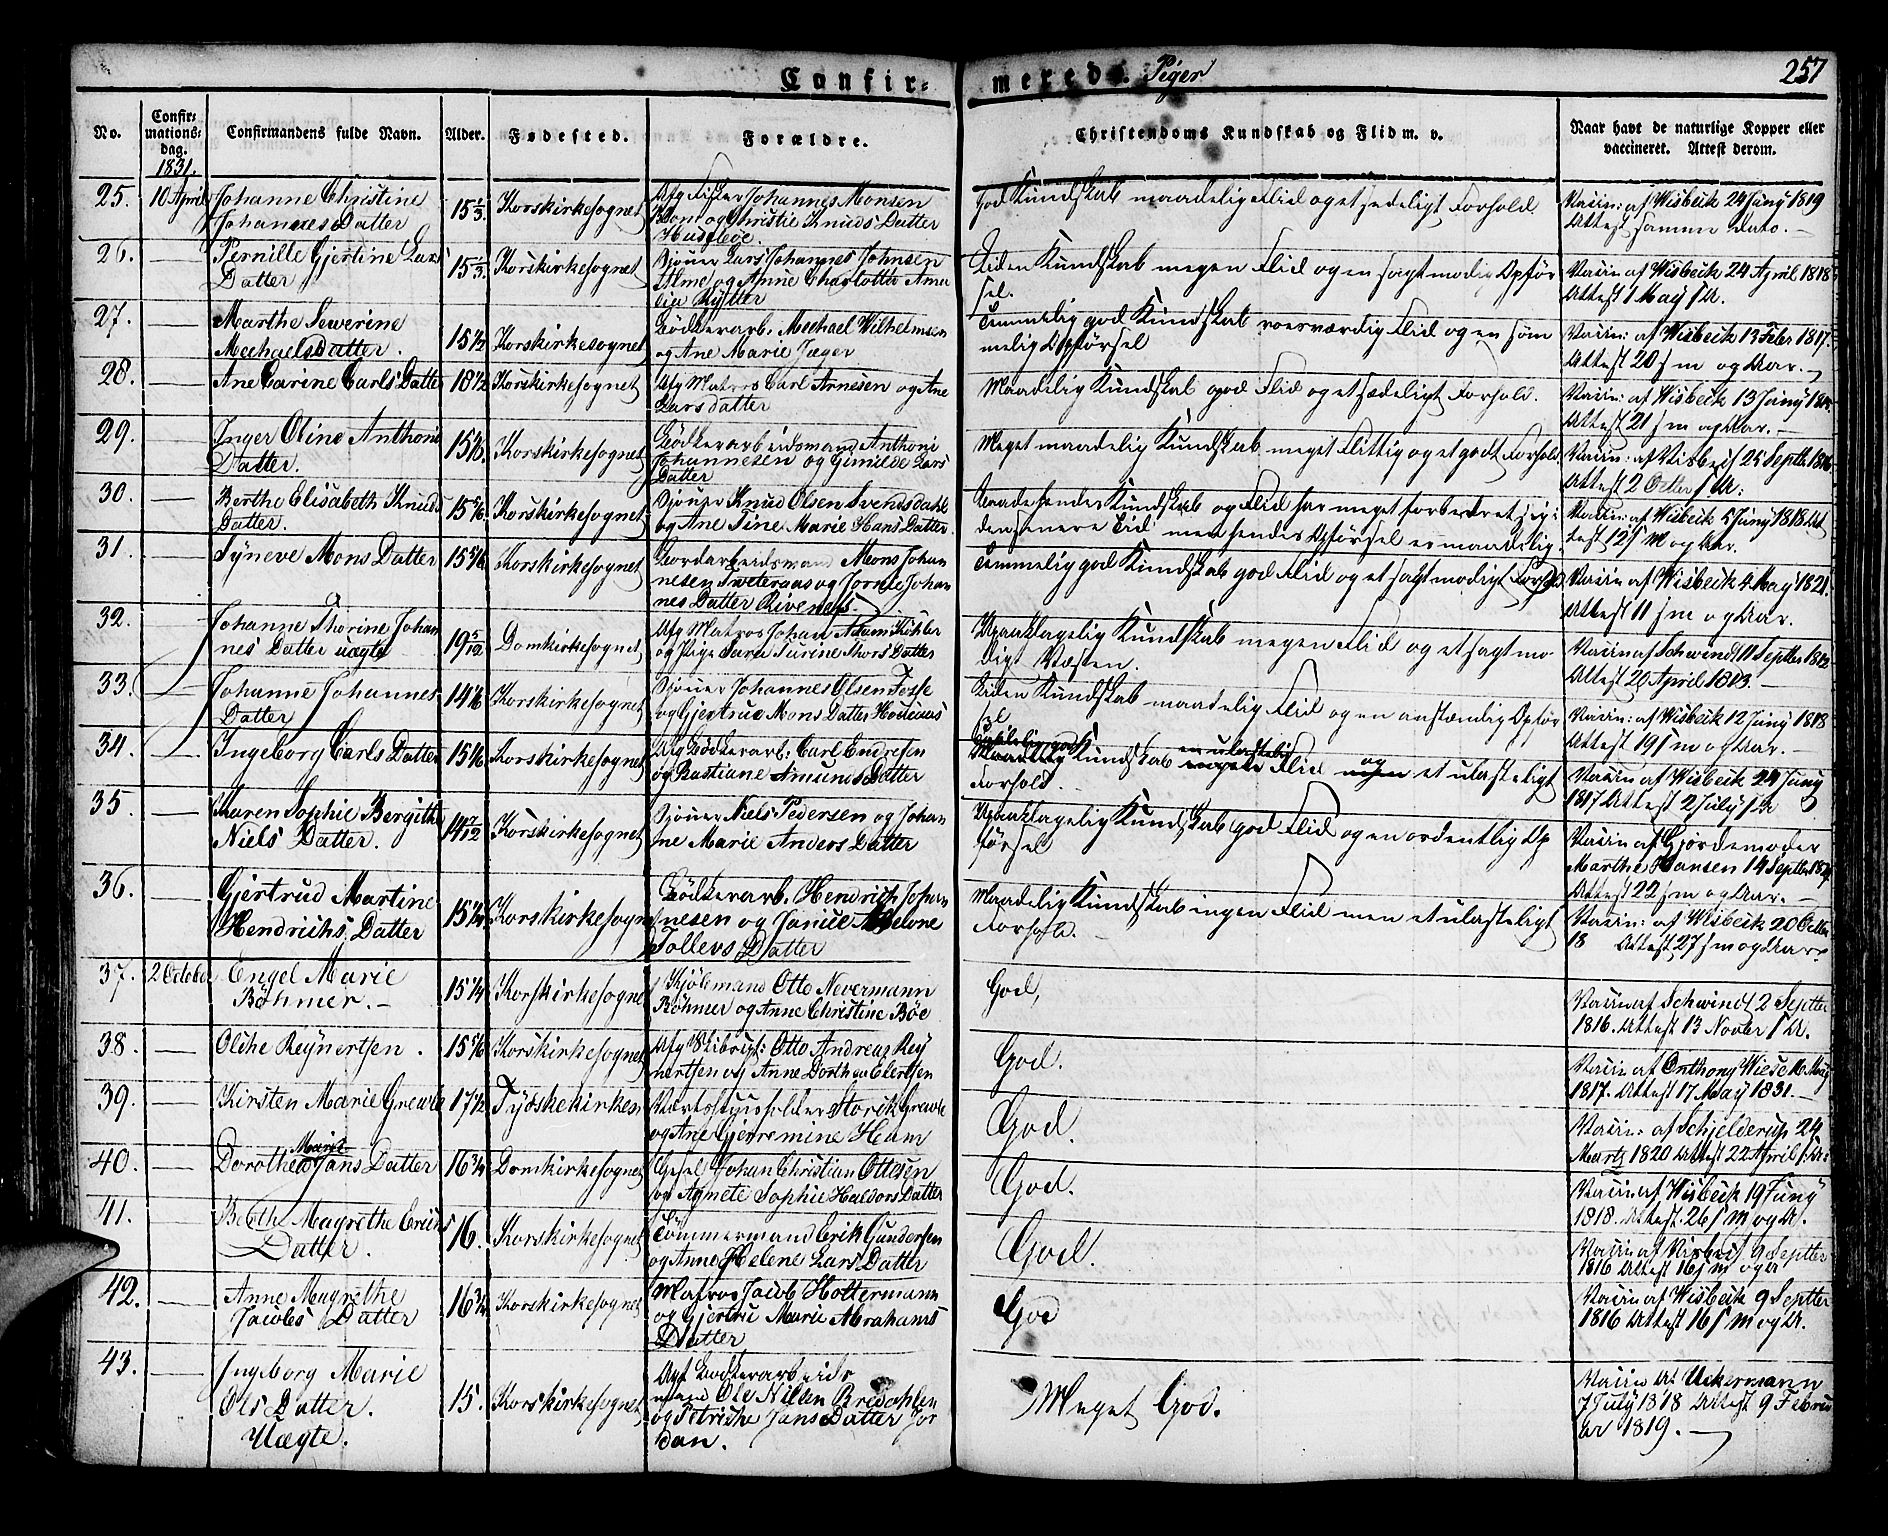 Confir=
merede. Piger
257
No.
Confir=
mations=
dag.
1831.
Confirmandens fulde Navn.
Alder.
Fødested.
Forældre.
Christendoms Kundskab og Flid m. v.
Naar havt de naturlige Kopper eller
vaccineret. Attest derom.
25. 10 April Johanne Christine
Johannes Datter
15 1/3 Korskirkesognet
Afg Fisker Johannes Monsen
og Christie Knuds Datter
God Kundskab maadelig Flid og et sædeligt Forhold
Vaccin: af Wisbeck 24 Juny 1819
Attest samme Dato. —
26. — Pernille Gjertine Lars
Datter
15 1/3 Korskirkesognet
Lars Johannes Johnsen
og Anne Charlotte Ame
lia Rytter
Liden Kundskab megen Flid og en sagtmodig Opfør
sel.
Vaccin af Wisbeck 24 April 1818
Attest 1 May s. A.
27. — Marthe Sewerine
Mechaelsdatter.
15 1/2 Korskirkesognet
Bødkerarb. Mechael Wilhelmsen
og Ane Marie Jæger
Temmelig god Kundskab roesværdig Flid og en søm
melig Opførsel
Vaccin: af Wisbeck 13 Febr 1817.
Attest 20 s m og Aar. —
28. — Ane Carine Carls Datter
18 1/2 Korskirkesognet
Afg Matros Carl Arnesen og Ane
Larsdatter
Maadelig Kundskab god Flid og et sædeligt Forhold.
Vaccin: af Wisbeck 13 Juny
Attest 21 s m og Aar. —
29. — Inger Oline Anthoni
Datter.
Korskirkesognet
Bødkerarbeidsmand Anthoni
Johannesen og Gunilde Lars
Datter
Meget maadelig Kundskab meget Flittig og et godt Forhold
Vaccin: af Wisbeck 25 Septbr 1816
Attest 2 Octbr s A:
30. — Berthe Elisabeth Knuds
Datter.
15 5/6 Korskirkesognet
Knud Olsen Svendsdahl
og Ane Tine Marie Hans Datter
hendes Kundskab og Flid har meget forbedret sig i
den senere Tid men hendes Opførsel er maadelig.
Vaccin: af Wisbeck 5 Juny 1818 At
test 12 s M og Aar.
31. — Syneve Mons Datter
15 5/6 Korskirkesognet
Mons Johan
nesen Tveteraas og Jorele Johan
nes Datter Rivenes.
Temmelig god Kundskab god Flid og et sagtmodigt Forhold
Vaccin af Wisbeck 4 May 1821.
Attest 11 s m og Aar.
32. — Johanne Thorine Johan
nes Datter uægte
19 5/12 Domkirkesognet
Afg Matros Johan Adam Køhler
og Pige Sara Turine Thors Datter
Upaaklagelig Kundskab megen Flid og et sagtmo
digt Væsen.
Vaccin af Schwindt 11 Septbr 1812
Attest 20 April 1813. —
33. — Johanne Johannes
Datter
14 1/6 Korskirkesognet
Johannes Olsen Fosse
og Gjertrue Mons Datter
Liden Kundskab maadelig Flid og en anstændig Opfør
sel
Vaccin: af Wisbeck 12 Juny 1818
Attest 19 s m og Aar. —
34. — Ingeborg Carls Datter
15 1/6 Korskirkesognet
Afg Bødkerarb: Carl Endresen
og Bastiane Amunds Datter
Kundskab Flid og et ulasteligt
Forhold.
Vaccin af Wisbeck 24 Juny
1817 Attest 2 July s A
35. — Karen Sophie Bergithe
Niels Datter.
14 7/12 Korskirkesognet
Niels Pedersen og Johan
ne Marie Anders Datter
Upaaklagelig Kundskab god Flid og en ordentlig Op
førsel
Vaccin af Gjordemoder
Marthe Hansen 14 Septbr
Attest 22 s m og Aar. —
36. — Gjertrud Martine
Hendrichs Datter
Korskirkesogne
Bødkerarb. Hendrich Johan
nesen og
Tollevs Datter
Maadelig Kundskab ingen Flid men et ulasteligt
Forhold.
Vaccin: af Wisbeck 20 Octbr
18 Attest 27 s m og Aar.
37. 2 October Engel Marie
Bøhmer. —
15 1/4 Korskirkesogne
Otto Nevermann
Bøhmer og Anne Christine Bøe
God,
Vaccin af Schwindt 2 Septbr
1816. Attest 13 Novbr s A.
38. — Olche Reynertsen.
15 5/6 Korskirkesognet
Otto Andreas Rey
nertsen og Anne Dorthea Elertsen
God.
Vaccin af Anthony Wiese
1817. Attest 17 May 1831. —
39. — Kirsten Marie Greave
17 1/2 Tydskekirken
Værtshuusholder Storik Greave
og Ane Gjerremine Ham
God.
Vaccin: af Schjelderup 24
Martz 1820 Attest 22 April s. A.
40. — Dorothea Marie Jans Datter
16 3/4 Domkirkesognet
Johan Christian Ottesen
og Agnete Sophie Haldors Datter
God.
Vaccin af Wisbeck 19 Juny
1818. Attest 26 s m og A.
41. — Berthe Magrethe Erichs
Datter.
16. Korskirkesognet
Tømmermand Erik Gundersen
og Anne Helene Lars Datter
God.
Vaccin af Wisbeck 9 Septbr
1816 Attest 16 s m og A
42. — Anne Magrethe
Jacobs Datter
16 3/4 Korskirkesognet
Matros Jacob Holtermann
og Gjertrue Marie Abrahams
Datter
God
Vaccin af Wisbeck 9 Septbr
1816 Attest 16 s m og A.
43. — Ingeborg Marie
Ols Datter.
Uægte.
15. Korskirkesognet
Afg Bødkerarbeids
mand Ole Nilsen Bredahlen
og Petriche Jans Datter Jor
dan.
Meget God.
Vaccin af Uckermann
7 July 1818 Attest 9 Febru
ar 1819. —